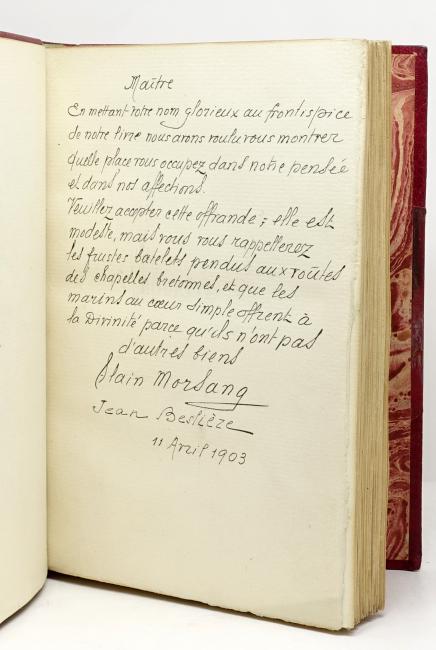 Maître
En mettant votre nom glorieux au frontispice
de notre livre nous avons voulu vous montrer
quelle place vous occupez dans notre pensée
et dans nos affections.
Veuillez accepter cette offrande ; elle est
modeste, mais vous vous rappellerez
les frustes batelets pendus aux voûtes
des chapelles bretonnes, et que les
marins au cœur simple offrent à
la Divinité parce qu'ils n'ont pas
d'autres biens
Alain Morsang
Jean Beslière
11 Avril 1903